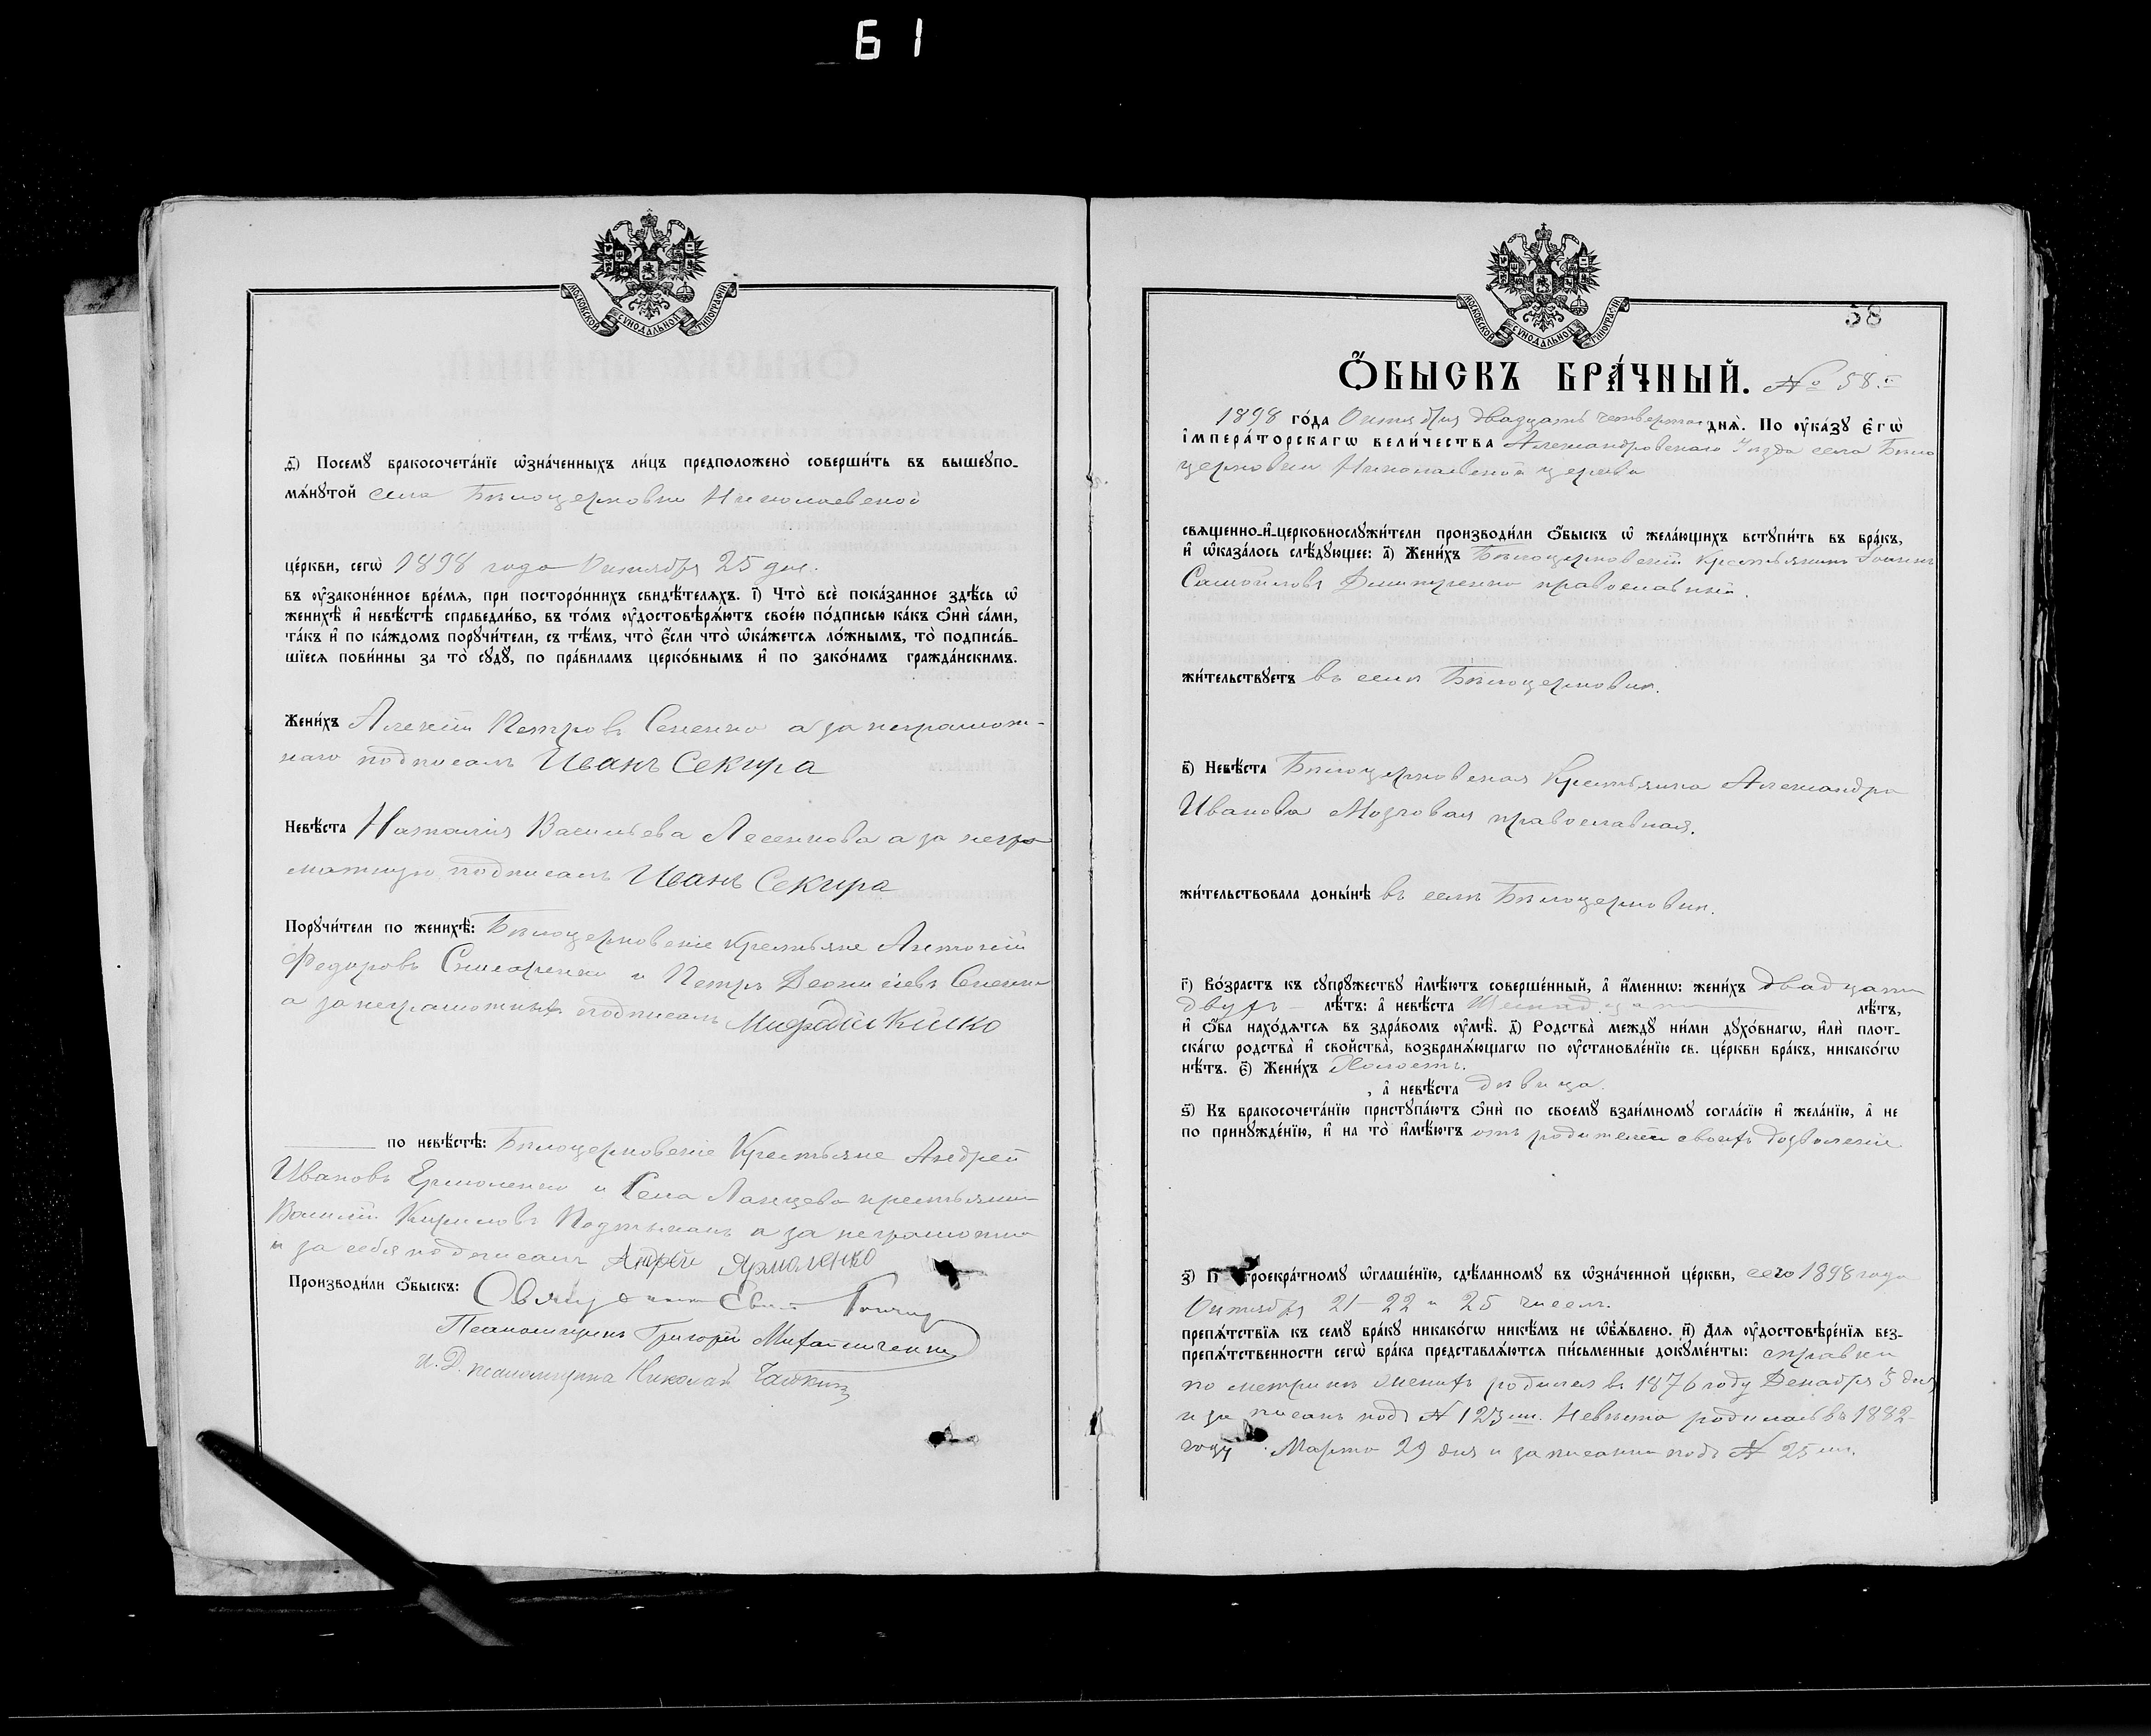 61
МОСКОВСКОЙ СУНОДАЛЬНОЙ ТИПОГРАФІИ
д҃) Посемꙋ бракосочета́нїе ѡ҆зна́ченныхъ ли́цъ предположено̀ соверши́ть въ вышеупо-
мѧ́нутой села Бѣлоцерковки Николаевской
це́ркви, сегѡ̀ 1898 года Октября 25 дня.
въ ᲂу҆законе́нное вре́мѧ, при посторо́ннихъ свидѣ́телѧхъ. і҃) Что̀ всѐ пока́занное здѣ́сь ѡ҆
женихѣ̀ и҆ невѣ́стѣ справедли́во, въ то́мъ ᲂу҆достовѣрѧ́ютъ свое́ю по́дписью ка́къ ѻ҆нѝ са́ми,
та́къ и҆ по ка́ждомъ порꙋчи́тели, съ тѣ́мъ, что̀ є҆́сли что̀ ѡ҆ка́жетсѧ ло́жнымъ, то̀ подписа́в-
шїесѧ пови́нны за то̀ сꙋдꙋ̀, по пра́виламъ церко́внымъ и҆ по зако́намъ гражда́нскимъ.
Жени́хъ Алексій Петровъ Сененко а за неграмот-
наго подписалъ Иванъ Секира
Невѣ́ста Наталія Васильева Лесенкова а за негра
мотную подписалъ Иванъ Секира
Порꙋчи́тели по женихѣ̀: Бѣлоцерковскіе крестьяне Антоній
Федоровъ и Петръ Сененко
а за неграмотныхъ подписалъ
по невѣ́стѣ: Бѣлоцерковскіе Крестьяне Андрей
Ивановъ Ермоленко и Села крестьянинъ
Василій Кириловъ а за неграмотна
и за себя подписалъ Андрей Ярмоленко
Производи́ли ѻ҆́быскъ: Священникъ
Псаломщикъ Григорій Михайличенко
И. Д. псаломщика Николай
МОСКОВСКОЙ СУНОДАЛЬНОЙ ТИПОГРАФІИ
58
Ѻ҆́БЫСКЪ БРА́ЧНЫЙ. № 58.й
1898 го́да Октября двадцать четвертаго днѧ̀. По ᲂу҆ка́зꙋ є҆гѡ̀
і҆мпера́торскагѡ вели́чества Александровскаго Уѣзда села Бѣло
церковки Николаевской церкви
свѧщенно-и҆-церковнослꙋжи́тели производи́ли ѻ҆́быскъ ѡ҆ жела́ющихъ встꙋпи́ть въ бра́къ,
и҆ ѡ҆каза́лось слѣ́дꙋющее: а҃) Жени́хъ Бѣлоцерковскій Крестьянинъ Іоаннъ
Самойловъ Дмитренко православный.
жи́тельствꙋетъ въ селѣ Бѣлоцерковкѣ.
в҃) Невѣ́ста Бѣлоцерковская Крестьянка Александра
Иванова Мозговая православная.
жи́тельствовала доны́нѣ въ селѣ Бѣлоцерковкѣ.
г҃) Во́зрастъ къ сꙋпрꙋ́жествꙋ и҆мѣ́ютъ соверше́нный, а҆ и҆́меннѡ: жени́хъ двадцати
двухъ лѣ́тъ: а҆ невѣ́ста Шеснадцати лѣ́тъ,
и҆ ѻ҆́ба нахо́дѧтсѧ въ здра́вомъ ᲂу҆мѣ̀. д҃) Родства̀ междꙋ ни́ми дꙋхо́внагѡ, и҆лѝ плот-
ска́гѡ родства̀ и҆ сво́йства̀, возбранѧ́ющагѡ по ᲂу҆становле́нїю св. це́ркви бра́къ, никако́гѡ
нѣ́тъ. є҃) Жени́хъ Холостъ.
, а҆ невѣ́ста дѣвица.
ѕ҃) Къ бракосочета́нїю пристꙋпа́ютъ ѻ҆нѝ по своемꙋ̀ взаи́мномꙋ согла́сїю и҆ жела́нїю, а҆ не
по принꙋжде́нїю, и҆ на то̀ и҆мѣ́ютъ отъ родителей своихъ дозволеніе
з҃) П троекра́тномꙋ ѡ҆глаше́нїю, сдѣ́ланномꙋ въ ѡ҆зна́ченной це́ркви, сего 1898 года
Октября 21-22 и 25 чиселъ.
препѧ́тствїѧ къ семꙋ̀ бра́кꙋ никако́гѡ никѣ́мъ не ѡ҆б̾ѧ́влено. и҃) Длѧ ᲂу҆достовѣре́нїѧ без-
препѧ́тственности сегѡ̀ бра́ка представлѧ́ютсѧ пи́сьменные докꙋме́нты: справки
по метрикѣ Женихъ родился въ 1876 году Декабря 5 дня
и записанъ подъ № 123 мъ. Невѣста родилась въ 1882
году Марта 29 дня и записанна подъ № 25 мъ.